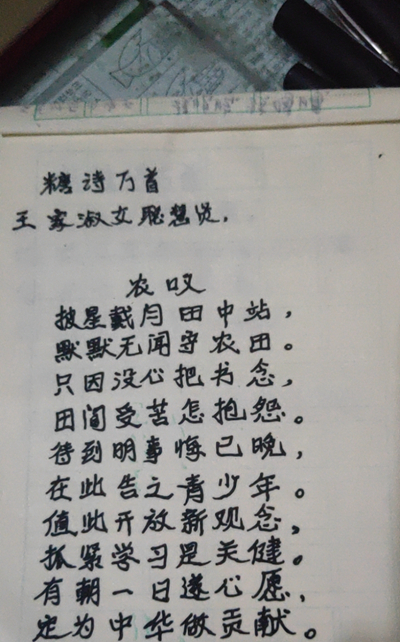 糖诗万首
王家淑文聪慧贤.
农叹
披星戴月田中站，
默默无闻守农田。
只因没心把书念，
田间受苦怎抱怨。
待到明事悔已晚，
在此告之青少年。
值此开放新观念，
抓紧学习是关健。
有朝一日遂心愿，
定为中华做贡献。